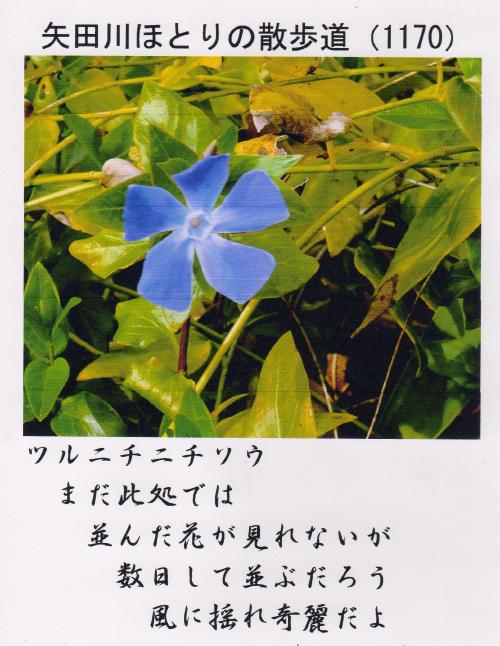 矢田川ほとりの散歩道（1170）
ツルニチニチソウ
まだ此処では
並んだ花が見れないが
数日して並ぶだろう
風に揺れ奇麗だよ